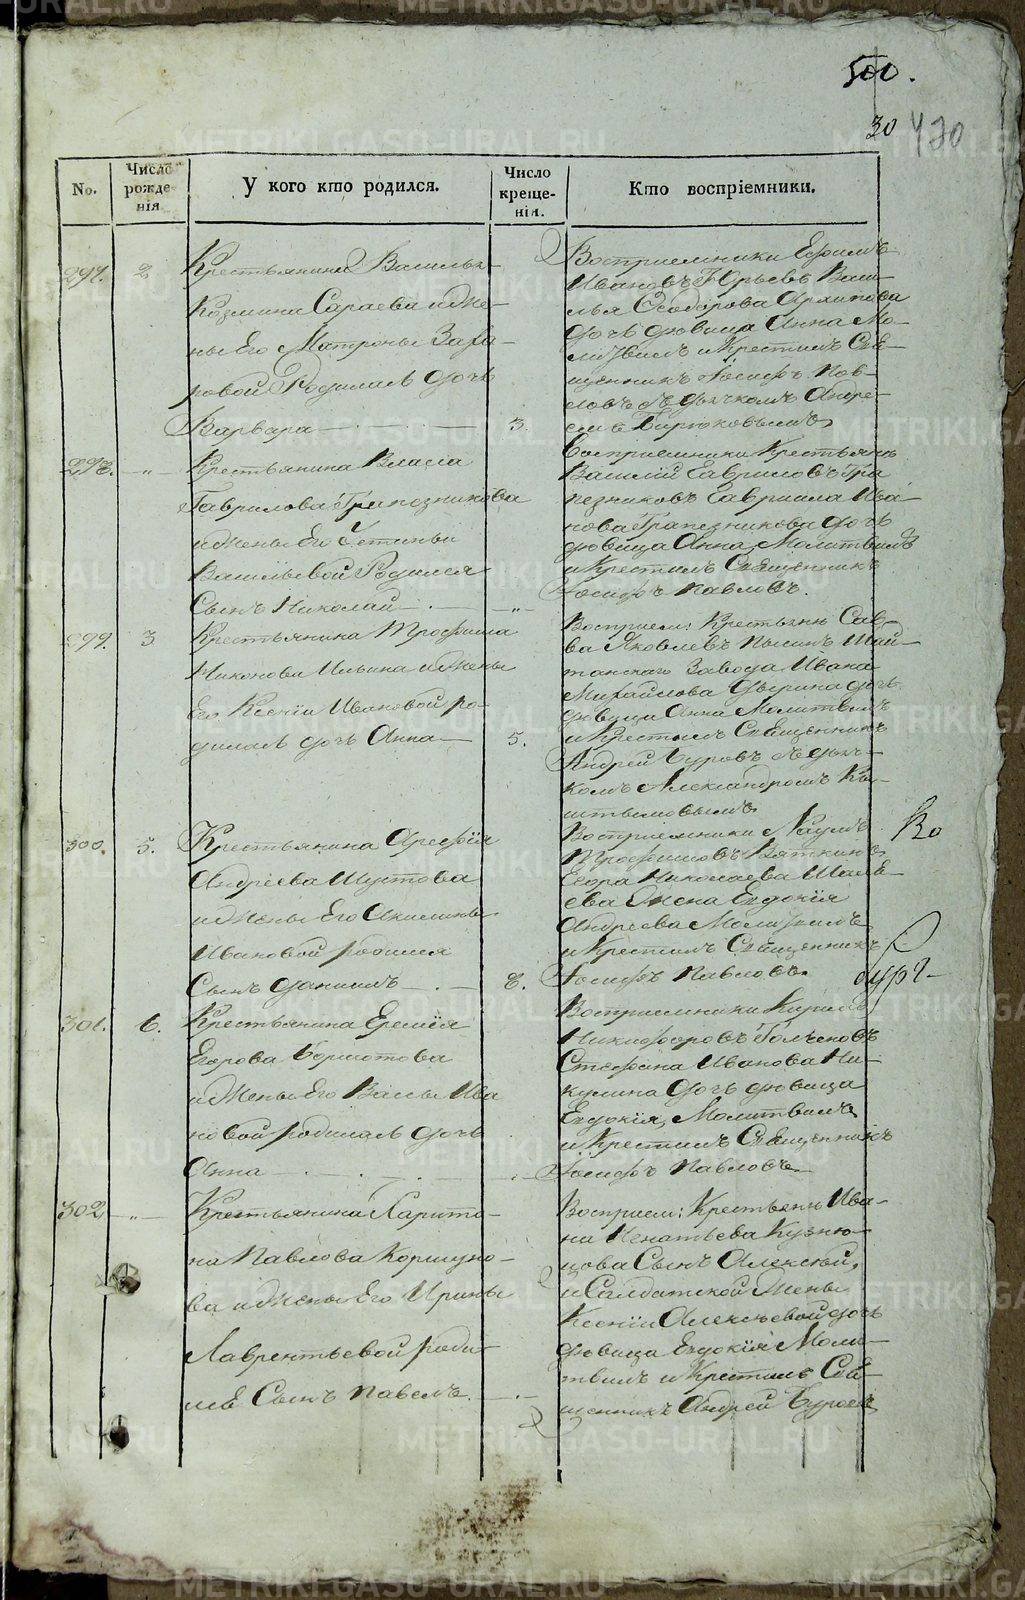 500.
30 470
No.
Число рожде-нія
У кого кто родился.
Число креще-нія.
Кто воспріемники.
297. 2
Крестьянина Василья
Козмина Сараева и Же-
ны Его Матроны Заха-
ровой Родилась дочь
Варвара 3.
Восприемники Ефимъ
Ивановъ Юрьевъ Васи-
лья Феодорова Архипова
дочь девица Анна Мо-
литвилъ и Крестилъ Све-
щенникъ Иосифъ Пав-
ловъ с дьячкомъ Андре-
емъ Бирюковымъ
298. "
Крестьянина Власа
Гаврилова Трапезникова
и Жены Его Устиньи
Васильевой Родился
Сынъ Николай "
Восприемники Крестьян
Василий Гавриловъ Тра
пезниковъ Гавриила Ива-
нова Трапезникова дочь
девица Анна Молитвилъ
и Крестилъ Священникъ
Иосифъ Павловъ.
299. 3
Крестьянина Трофима
Никонова Ильина и Жены
Его Ксении Ивановой ро-
дилась дочь Анна 5.
Восприем: Крестьян Сав-
ва Яковлевъ Шай-
танскаго Завода Ивана
Михайлова дочь
девица Анна Молитвилъ
и Крестилъ Священникъ
Андрей Буровъ с дьяч-
комъ Александромъ Кы-
штымовымъ
300. 5.
Крестьянина Арефия
Андреева Шустова
и Жены Его Акилины
Ивановой родился
Сынъ Даниилъ 8.
Восприемники Наумъ
Трофимовъ Вяткинъ
Егора Николаева
Жена Евдокия
Андреева Молитвилъ
и Крестилъ Священникъ
Иосифъ Павловъ
Ко
301. 6.
Крестьянина Еремея
Егорова
и Жены Его Васы Ива
новой родилась дочь
Анна
Восприемники Кирилъ
Никифоровъ
Стефана Иванова Ни-
кулина дочь девица
Евдокия, Молитвилъ
и Крестилъ Священникъ
Иосифъ Павловъ
302 "
Крестьянина Харито-
на Павлова Коршуно-
ва и Жены Его Ирины
Лаврентьевой роди-
лся Сынъ Павелъ.
Восприем: Крестьян Ива-
на Игнатьева Кузне-
цова Сынъ Алексей,
и Салдатской Жены
Ксении Алексеевой дочь
девица Евдокия Моли-
твилъ и Крестилъ Свя-
щенникъ Андрей Буровъ
METRIKI.GASO-URAL.RU